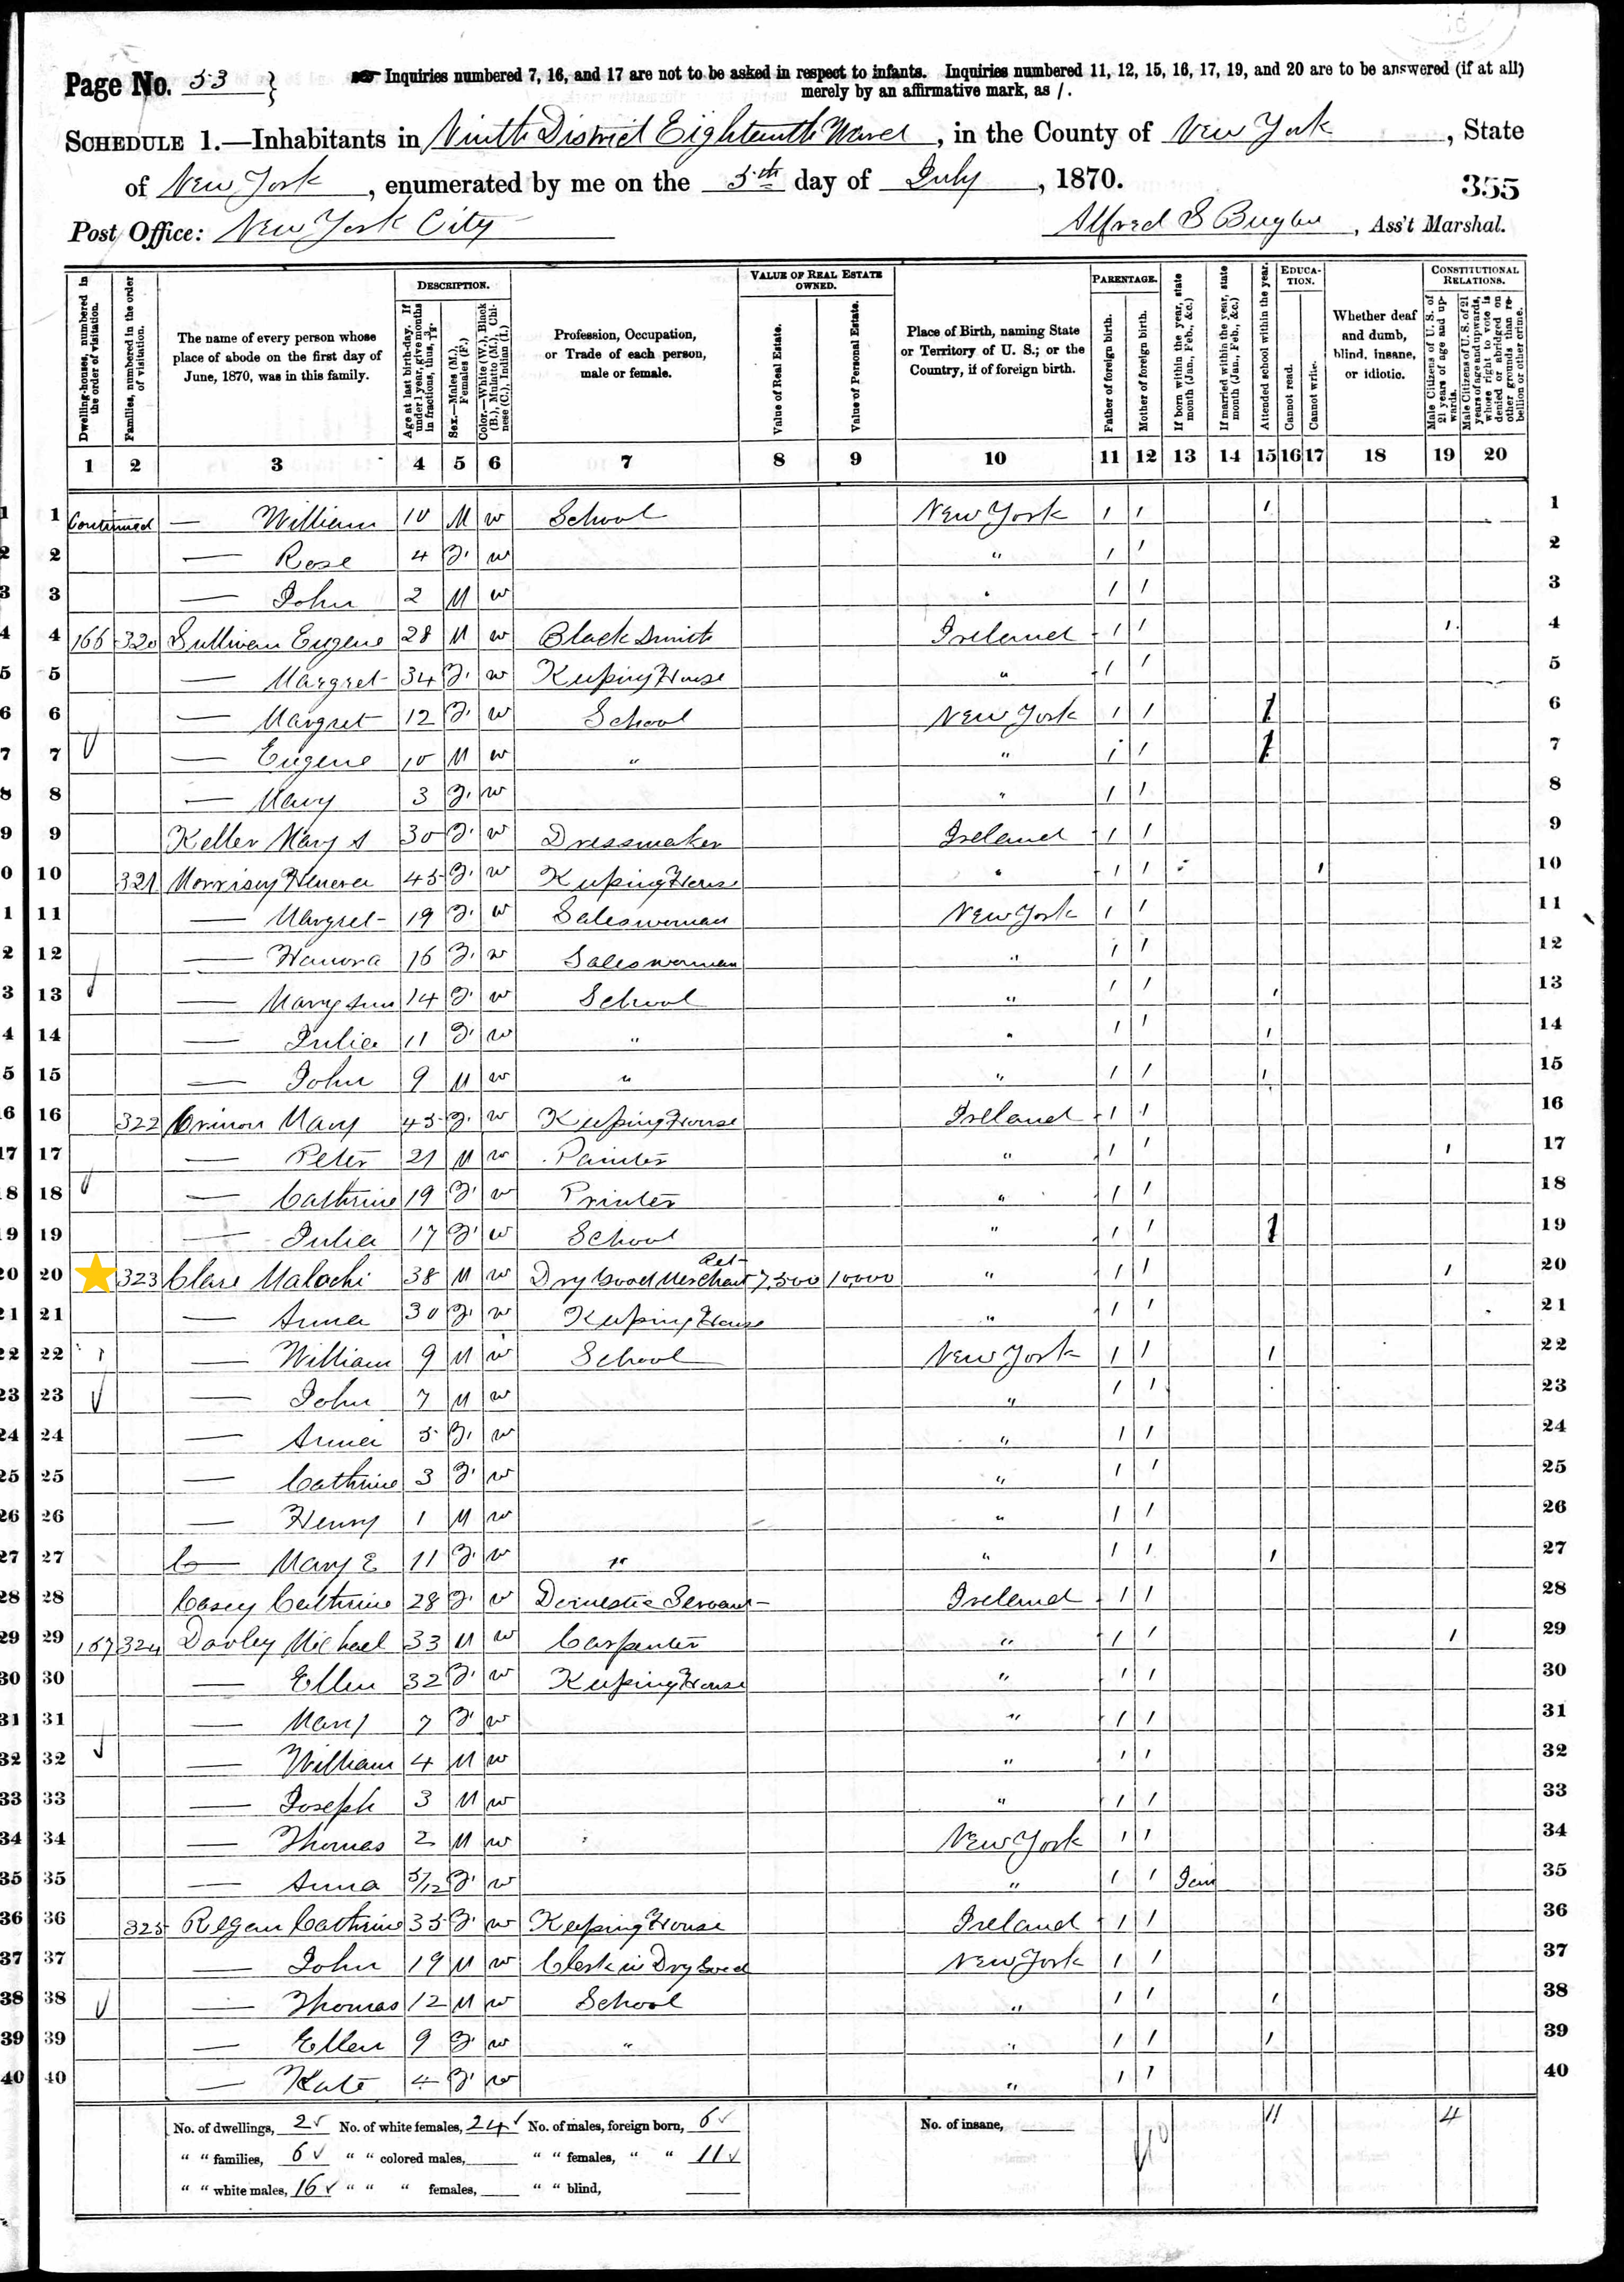 Page No. 53 }
Inquiries numbered 7, 16, and 17 are not to be asked in respect to infants. Inquiries numbered 11, 12, 15, 16, 17, 19, and 20 are to be answered (if at all)
merely by an affirmative mark, as /.
SCHEDULE 1.—Inhabitants in Ninth District Eighteenth Ward, in the County of New York, State
of New York, enumerated by me on the 5th day of July, 1870.
355
Post Office: New York City
Alfred S , Ass't Marshal.
Dwelling-houses, numbered in the order of visitation.
Families, numbered in the order of visitation.
The name of every person whose place of abode on the first day of June, 1870, was in this family.
DESCRIPTION.
Age at last birth-day. If under 1 year, give months in fractions, thus, 3/12.
Sex.—Males (M.), Females (F.)
Color.—White (W.), Black (B.), Mulatto (M.), Chinese (C.), Indian (I.)
Profession, Occupation, or Trade of each person, male or female.
VALUE OF REAL ESTATE OWNED.
Value of Real Estate.
Value of Personal Estate.
Place of Birth, naming State or Territory of U. S.; or the Country, if of foreign birth.
PARENTAGE.
Father of foreign birth.
Mother of foreign birth.
If born within the year, state month (Jan., Feb., &c.)
If married within the year, state month (Jan., Feb., &c.)
Attended school within the year.
EDUCATION.
Cannot read.
Cannot write.
Whether deaf and dumb, blind, insane, or idiotic.
CONSTITUTIONAL RELATIONS.
Male Citizens of U. S. of 21 years of age and upwards.
Male Citizens of U. S. of 21 years of age and upwards, whose right to vote is denied or abridged on other grounds than rebellion or other crime.
1 2 3 4 5 6 7 8 9 10 11 12 13 14 15 16 17 18 19 20
1 Continued — William 10 M w School New York / / / 1
2 — Rose 4 F. w " / / 2
3 — John 2 M w " / / 3
4 166 320 Sullivan Eugene 28 M w Black Smith Ireland / / / 4
5 — Margret 34 F. w Keeping House " / / 5
6 — Margret 12 F. w School New York / / 1 6
7 — Eugene 10 M w " " / / 1 7
8 — Mary 3 F. w " / / 8
9 Keller Mary A 30 F. w Dressmaker Ireland / / 9
10 321 Morrisey 45 F. w Keeping House " / / / 10
11 — Margret 19 F. w Saleswoman New York / / 11
12 — Hanora 16 F. w Saleswoman " / / 12
13 — Mary Ann 14 F. w School " / / / 13
14 — Julia 11 F. w " " / / / 14
15 — John 9 M w " " / / / 15
16 322 Mary 45 F. w Keeping House Ireland / / 16
17 — Peter 21 M w Painter " / / / 17
18 — Cathrine 19 F. w Printer " / / 18
19 — Julia 17 F. w School " / / 1 19
20 323 Clare Malachi 38 M w Ret- Dry Good Merchant 7,500 10000 " / / / 20
21 — Anna 30 F. w Keeping House " / / 21
22 — William 9 M w School New York / / / 22
23 — John 7 M w " / / 23
24 — Anna 5 F. w " / / 24
25 — Cathrine 3 F. w " / / 25
26 — Henry 1 M w " / / 26
27 C— Mary E 11 F. w " " / / / 27
28 Casey Cathrine 28 F. w Domestic Servant Ireland / / 28
29 167 324 Davley Michael 33 M w Carpenter " / / / 29
30 — Ellen 32 F. w Keeping House " / / 30
31 — Mary 7 F. w " / / 31
32 — William 4 M w " / / 32
33 — Joseph 3 M w " / / 33
34 — Thomas 2 M w New York / / 34
35 — Anna 5/12 F. w " / / Jan 35
36 325 Regan Cathrine 35 F. w Keeping House Ireland / / 36
37 — John 19 M w Clerk in Dry Good New York / / 37
38 — Thomas 12 M w School " / / / 38
39 — Ellen 9 F. w " " / / / 39
40 — Kate 4 F. w " / / 40
No. of dwellings, 2 No. of white females, 24 No. of males, foreign born, 6 No. of insane, 11 4
" " families, 6 " " colored males, " " females, " " 11
" " white males, 16 " " " females, " " blind,